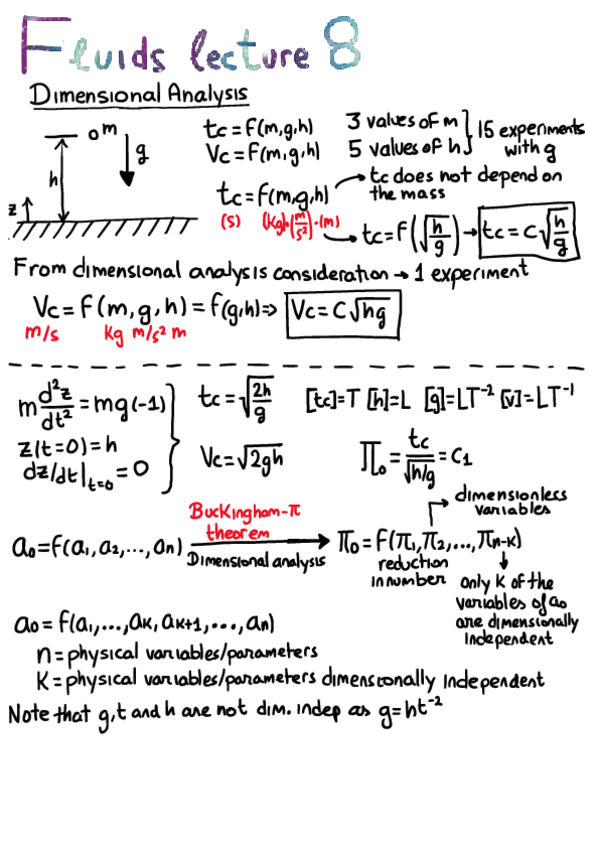 Fluids lecture 8
Dimensional Analysis
m
g
h
z
tc = f(m,g,h)
Vc = f(m,g,h)
3 values of m
5 values of h
15 experiments with g
tc = f(m,g,h)
(s) (kg)·(m/s²)·(m)
tc does not depend on the mass
tc = f(√(h/g)) → tc = C√(h/g)
From dimensional analysis consideration → 1 experiment
Vc = f(m,g,h) = f(g,h) ⇒ Vc = C√hg
m/s kg m/s² m
m d²z/dt² = mg(-1)
z(t=0) = h
dz/dt|t=0 = 0
tc = √(2h/g)
Vc = √2gh
[tc]=T [h]=L [g]=LT⁻² [v]=LT⁻¹
Π₀ = tc/√h/g = C₁
dimensionless variables
a₀ = f(a₁, a₂, ..., an)
Buckingham-π theorem
Dimensional analysis
π₀ = F(π₁, π₂, ..., πn-k)
reduction in number
only K of the variables of a₀ are dimensionally independent
a₀ = f(a₁, ..., aK, aK+1, ..., an)
n = physical variables/parameters
K = physical variables/parameters dimensionally independent
Note that g,t and h are not dim. indep as g=ht⁻²